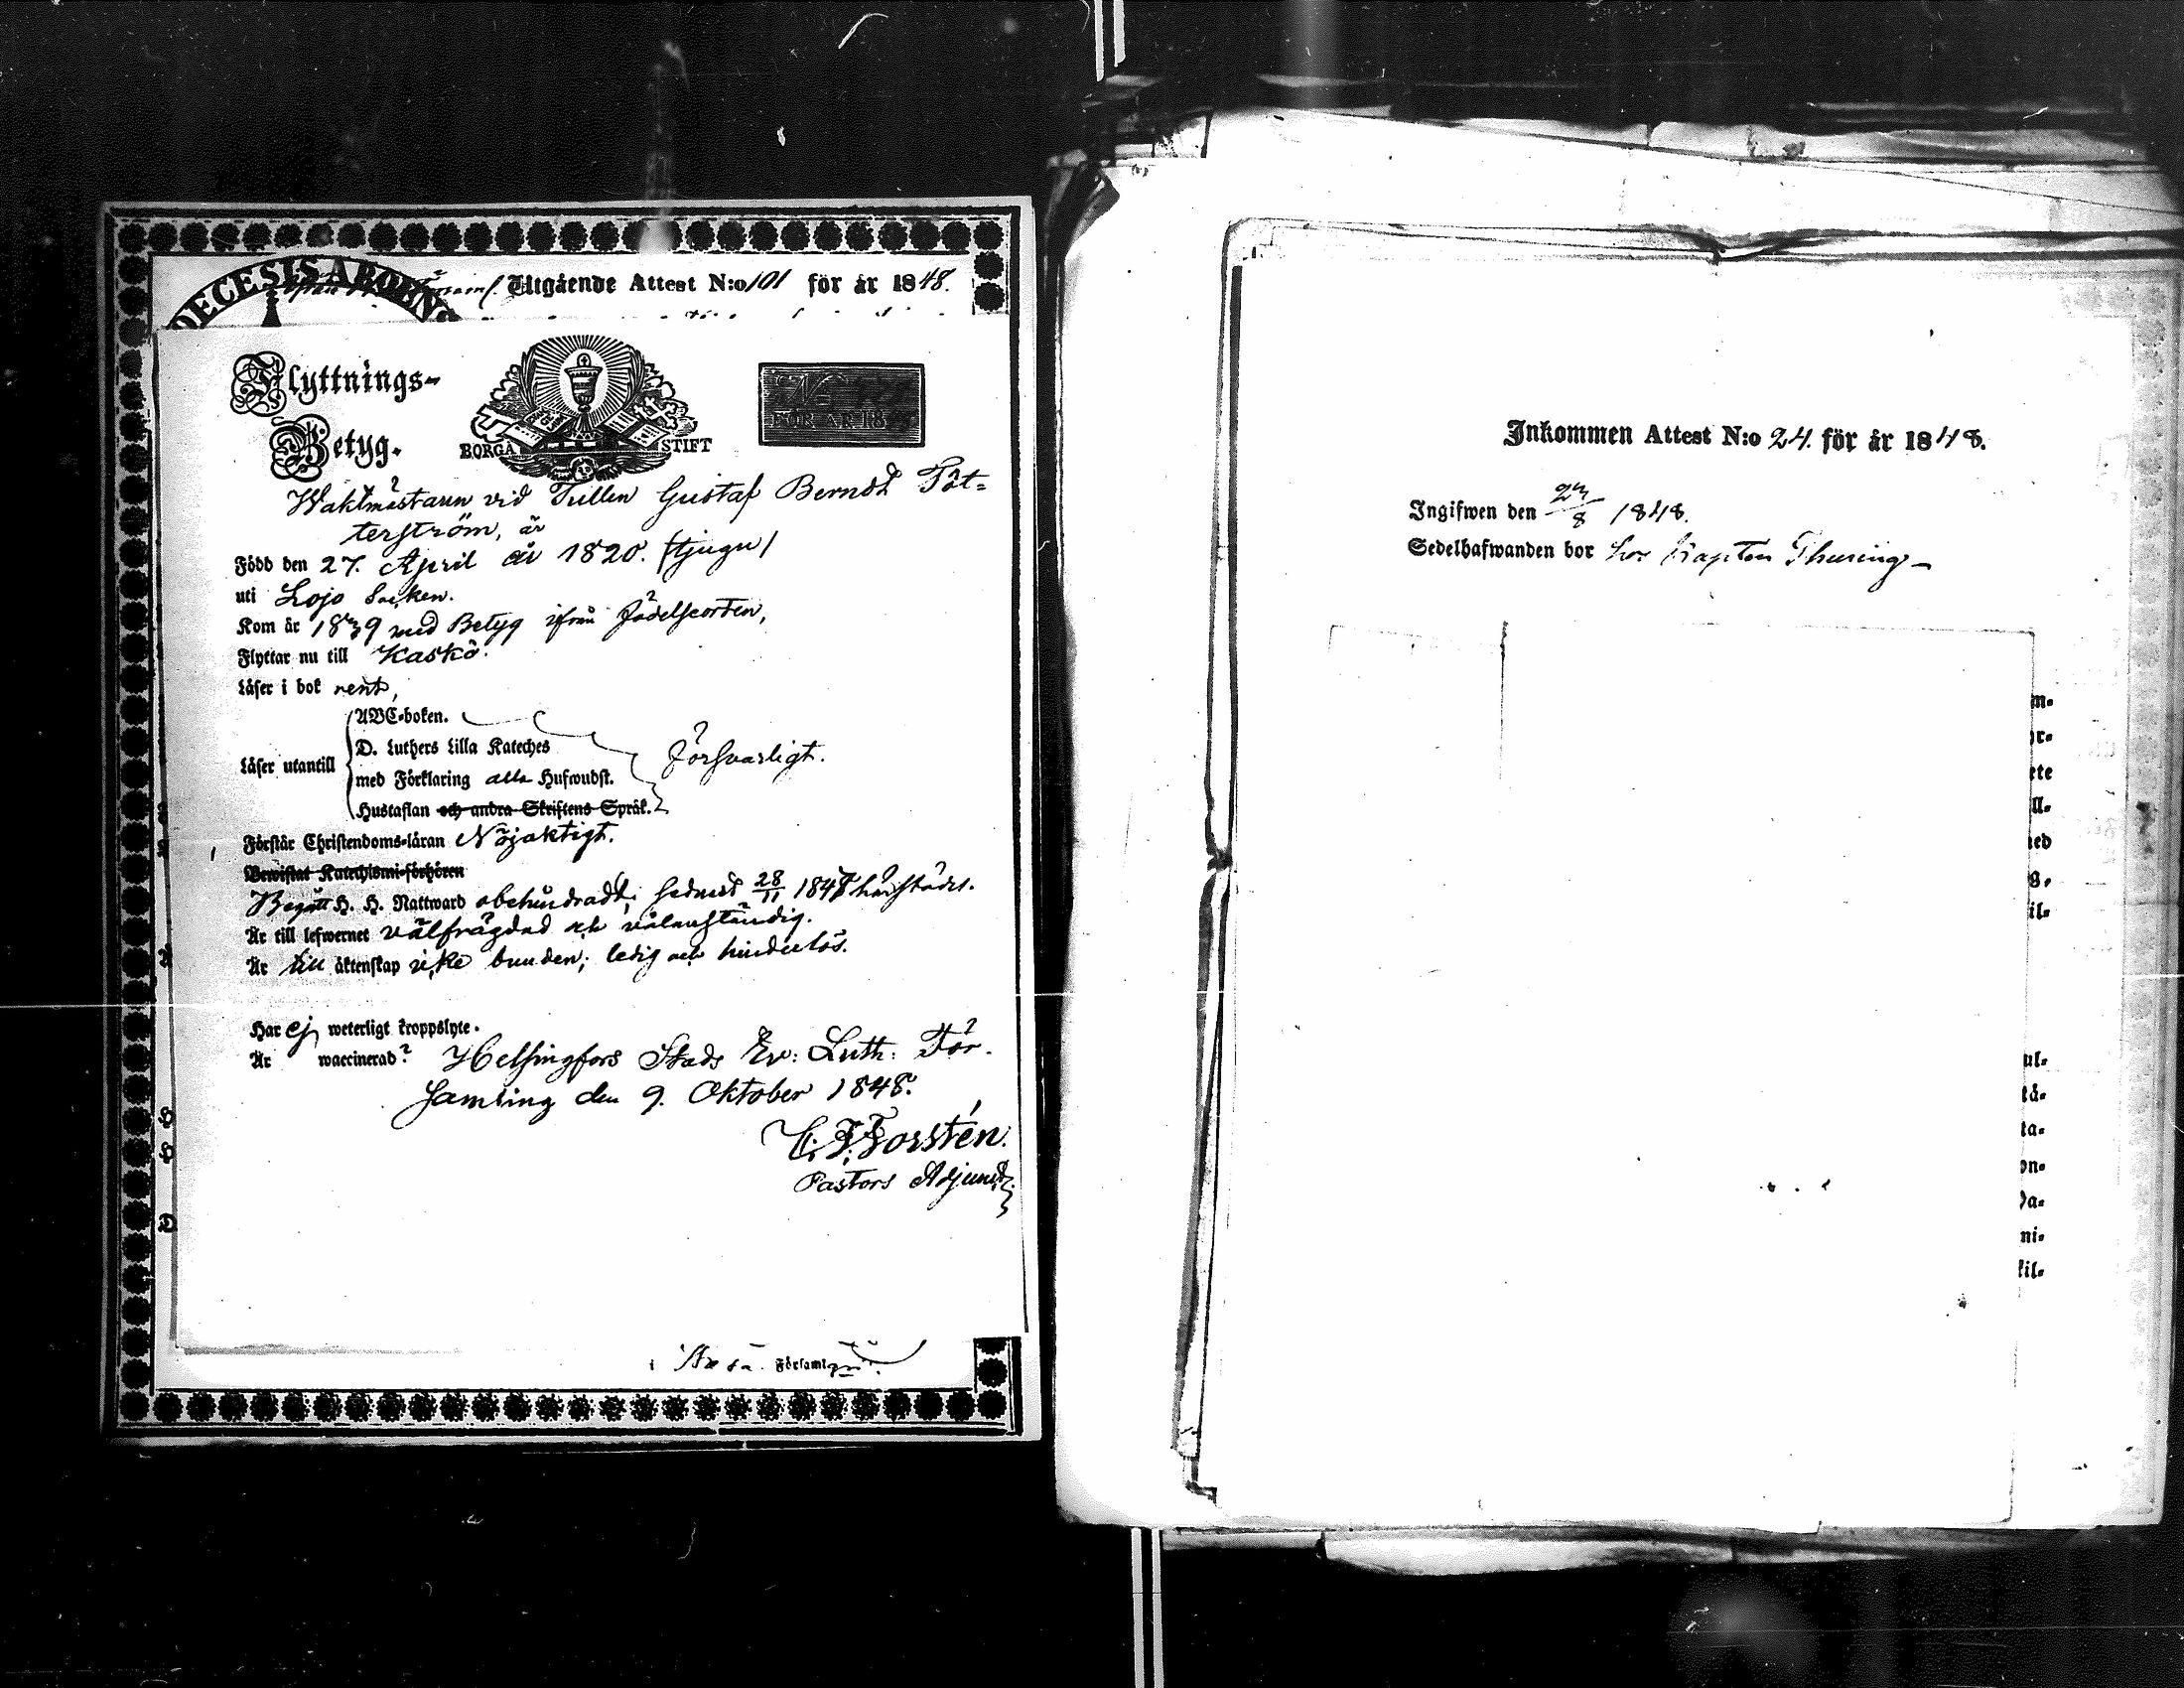 DECESIS ABOENS
Utgående Attest N:o 101 för år 1848.
Flyttnings-
Betyg.
BORGÅ STIFT
N:o
FÖR ÅR 18
Waktmästaren vid Tullen Gustaf Berndt Påt=
terström, är
Född den 27. April år 1820. /tjugu/
uti Lojo Socken.
Kom år 1839 med Betyg ifrån
Flyttar nu till Kaskö.
Läser i bok rent,
ABC-boken.
D. Luthers Lilla Kateches
Läser utantill
med Förklaring alla Hufwudst.
Försvarligt.
Hustaflan och andra Skriftens Språk.
Förstår Christendoms-läran Nöjaktigt.
Bewistat Katechismi-förhören
Begått H. H. Nattward obehindradt, sednast 28/11 1847 härstädes.
Är till lefwernet välfrägdad och välanständig.
Är till äktenskap icke bunden; ledig och hinderlös.
Har ej weterligt kroppslyte.
Är waccinerad? Helsingfors Stads Ev: Luth: För-
samling den 9. Oktober 1848.
C. F. Forstén.
Pastors Adjunct
Församl
Inkommen Attest N:o 24. för år 1848.
Ingifwen den 27/8 1848.
Sedelhafwanden bor hos Kapten Thuring
m-
or-
ete
ll-
ed
s-
il-
ul-
tå-
ta-
on-
Da-
ni-
kil-